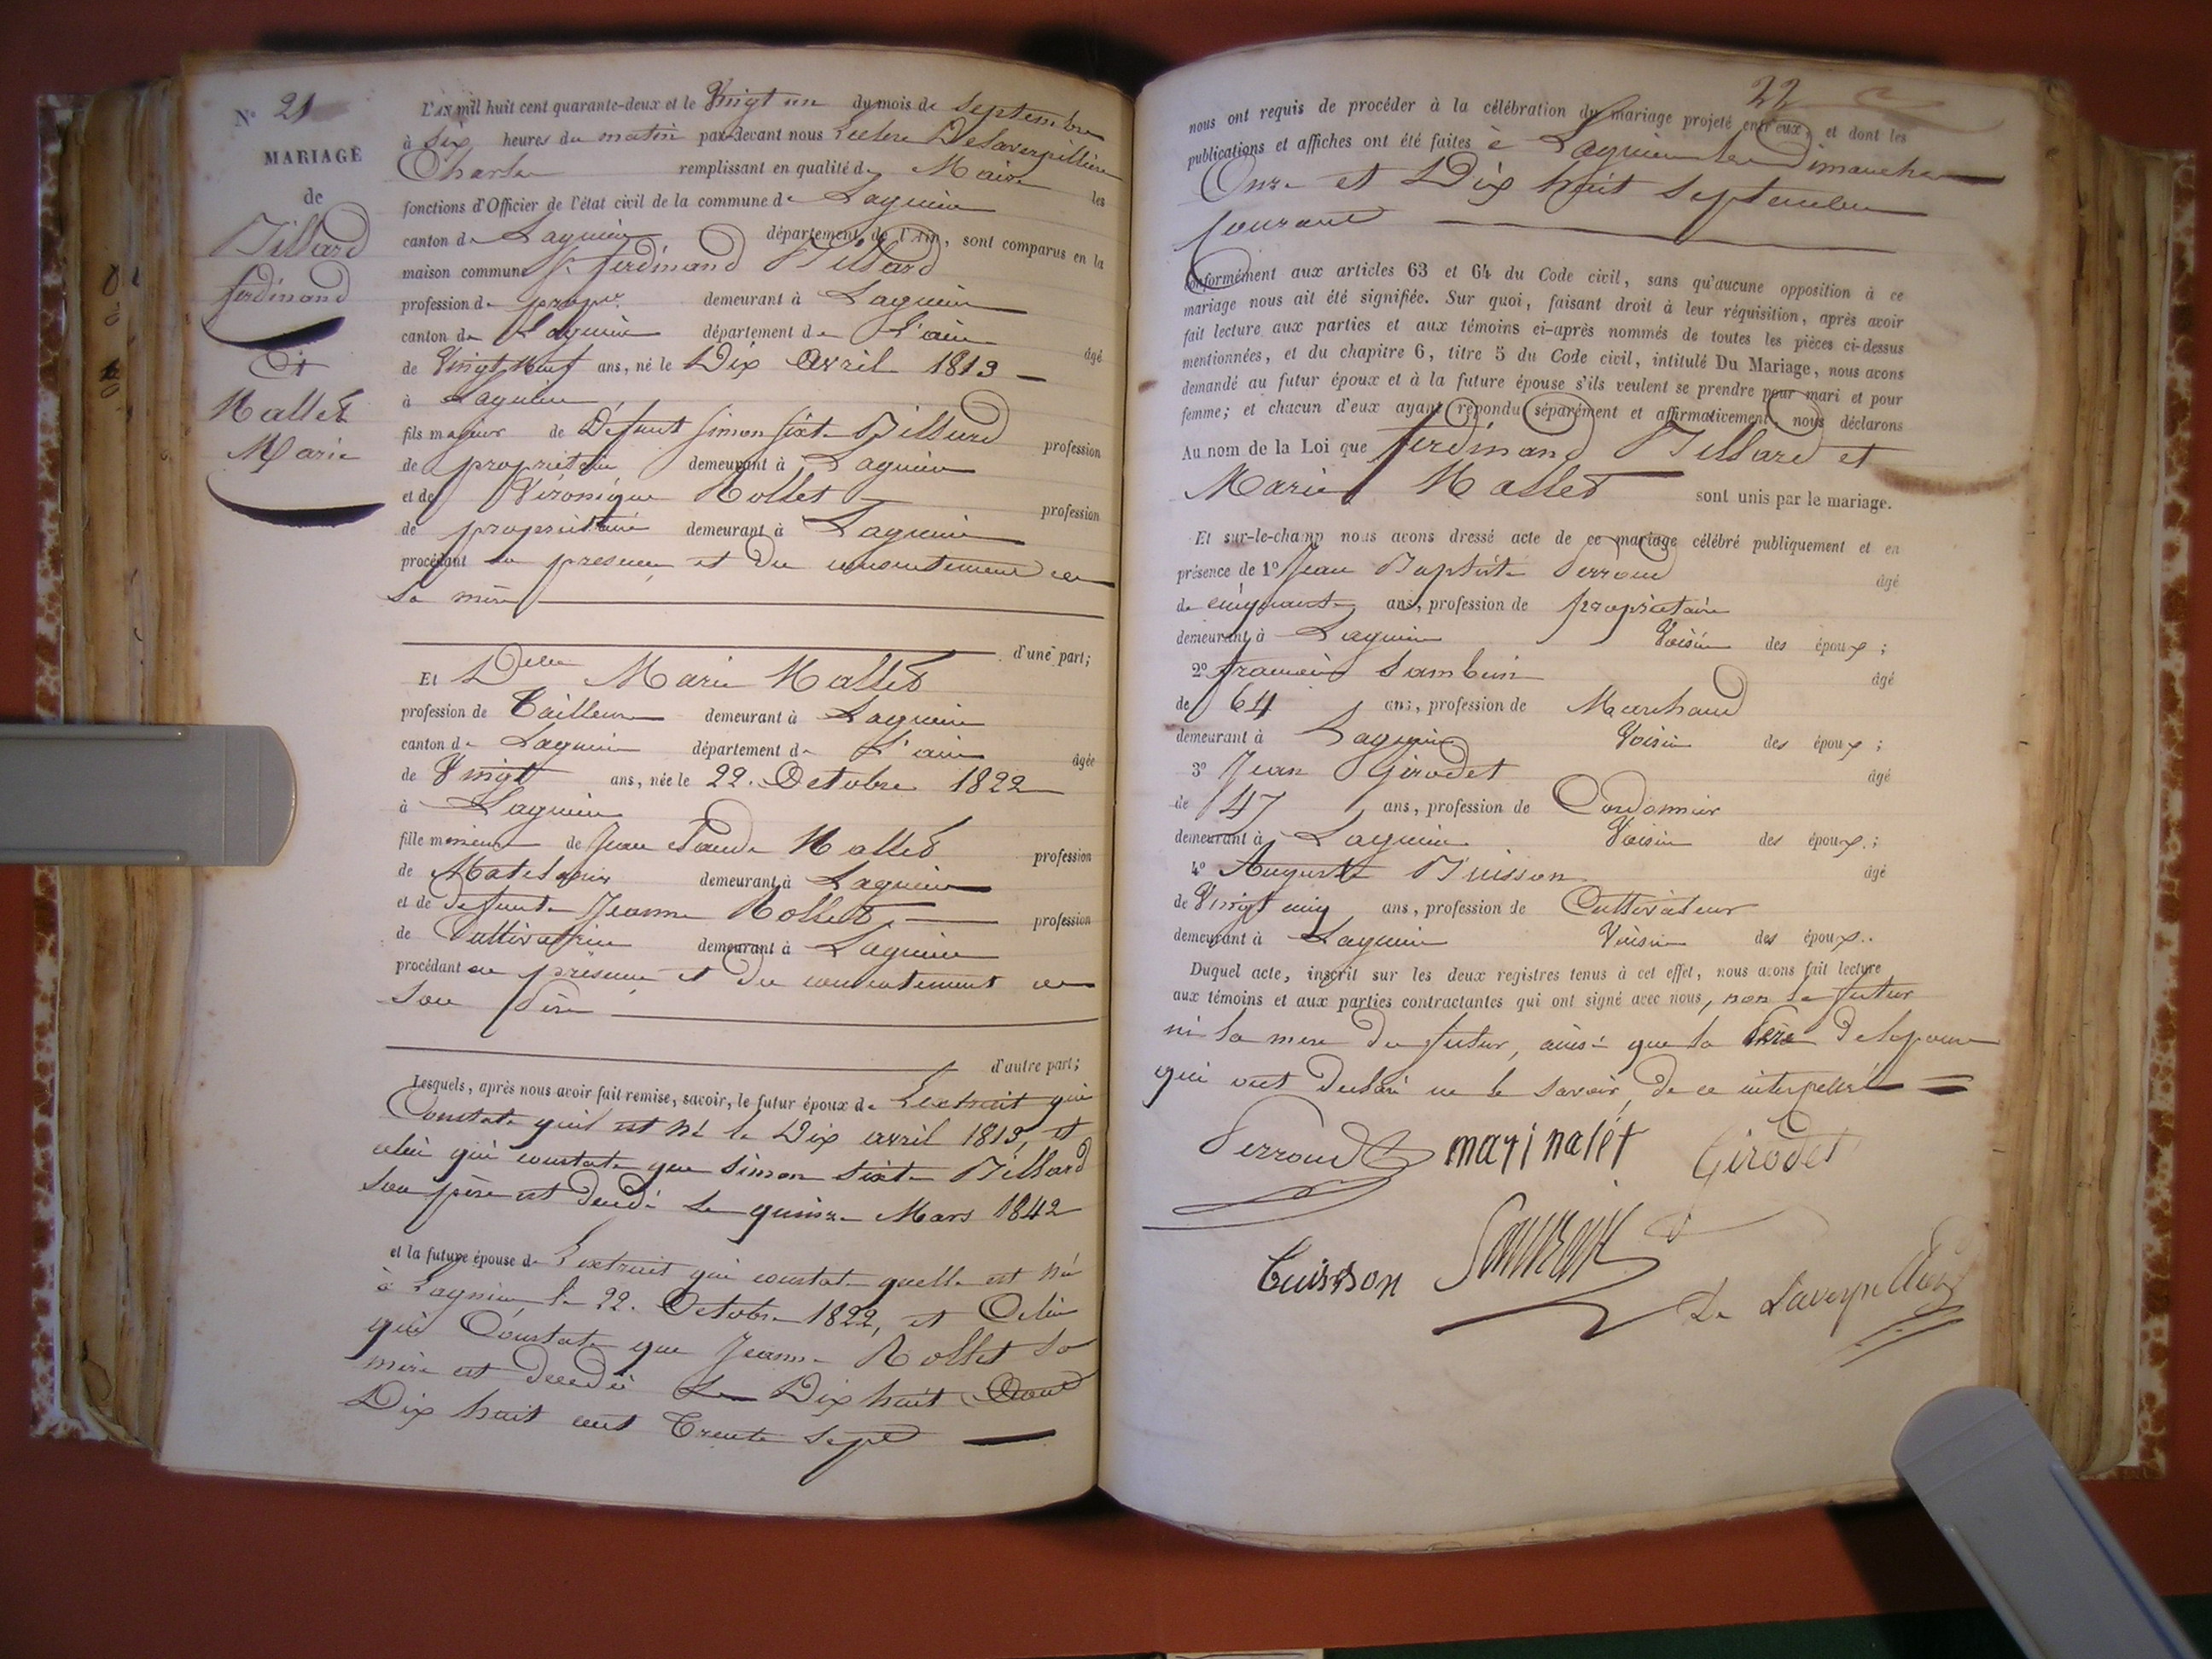 N° 21
MARIAGE
de
Billard
ferdinand
et
Mallet
Marie
L'AN mil huit cent quarante-deux et le Vingt un du mois de Septembre
à dix heures du matin par-devant nous Leclerc Delaverpillière
Charles remplissant en qualité de Maire les
fonctions d'Officier de l'état civil de la commune de Lagnieu
canton de Lagnieu département de l'Ain, sont comparus en la
maison commune Sr ferdinand Billard
profession de propre demeurant à Lagnieu
canton de Lagnieu département de L'ain âgé
de Vingt Neuf ans, né le Dix Avril 1813
à Lagnieu
fils majeur de Défunt Simon Sixte Billard profession
de propriétaire demeurant à Lagnieu
et de Véronique Rollet profession
de propriétaire demeurant à Lagnieu
procédant en présence et du consentement de
sa mère
d'une part;
Et Delle Marie Mallet
profession de Tailleuse demeurant à Lagnieu
canton de Lagnieu département de L'ain âgée
de Vingt ans, née le 22. Octobre 1822
à Lagnieu
fille mineure de Jean Claude Mallet profession
de Matelassier demeurant à Lagnieu
et de defunte Jeanne Rollet profession
de Cultivatrice demeurant à Lagnieu
procédant en présence et du consentement de
son Père
d'autre part;
Lesquels, après nous avoir fait remise, savoir, le futur époux de L'extrait qui
Constate qu'il est né le Dix avril 1813, et
celui qui constate que Simon Sixte Billard
son père est decedé le quinze Mars 1842
et la future épouse de L'extrait qui constate quelle est née
à Lagnieu le 22. Octobre 1822, et Celui
qui Constate que Jeanne Rollet sa
mère est decedée le Dix huit Aout
Dix huit cent Trente Sept
22
nous ont requis de procéder à la célébration du mariage projeté entr'eux, et dont les
publications et affiches ont été faites à Lagnieu les Dimanches
Onze et Dix huit Septembre
Courant
Conformément aux articles 63 et 64 du Code civil, sans qu'aucune opposition à ce
mariage nous ait été signifiée. Sur quoi, faisant droit à leur réquisition, après avoir
fait lecture aux parties et aux témoins ci-après nommés de toutes les pièces ci-dessus
mentionnées, et du chapitre 6, titre 5 du Code civil, intitulé Du Mariage, nous avons
demandé au futur époux et à la future épouse s'ils veulent se prendre pour mari et pour
femme; et chacun d'eux ayant répondu séparément et affirmativement, nous déclarons
Au nom de la Loi que ferdinand Billard et
Marie Mallet sont unis par le mariage.
Et sur-le-champ nous avons dressé acte de ce mariage célébré publiquement et en
présence de 1° Jean Baptiste Perroud âgé
de cinquante ans, profession de propriétaire
demeurant à Lagnieu Voisin des époux ;
2° francois Sambuin âgé
de 64 ans, profession de Marchand
demeurant à Lagnieu Voisin des époux ;
3° Jean Girodet âgé
de 47 ans, profession de Cordonnier
demeurant à Lagnieu Voisin des époux ;
4° Auguste Buisson âgé
de Vingt cinq ans, profession de Cultivateur
demeurant à Lagnieu Voisin des époux.
Duquel acte, inscrit sur les deux registres tenus à cet effet, nous avons fait lecture
aux témoins et aux parties contractantes qui ont signé avec nous, non le futur
ni la mere du futur, ainsi que le Père de lepouse
qui ont declaré ne le savoir, de ce interpellés
Perroud mari nalét Girodet
Buisson
De Laverpilliere